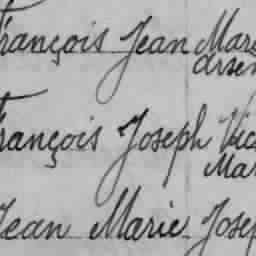 François Jean Mar
arsen
François Joseph Vic
Mar
Jean Marie Josep